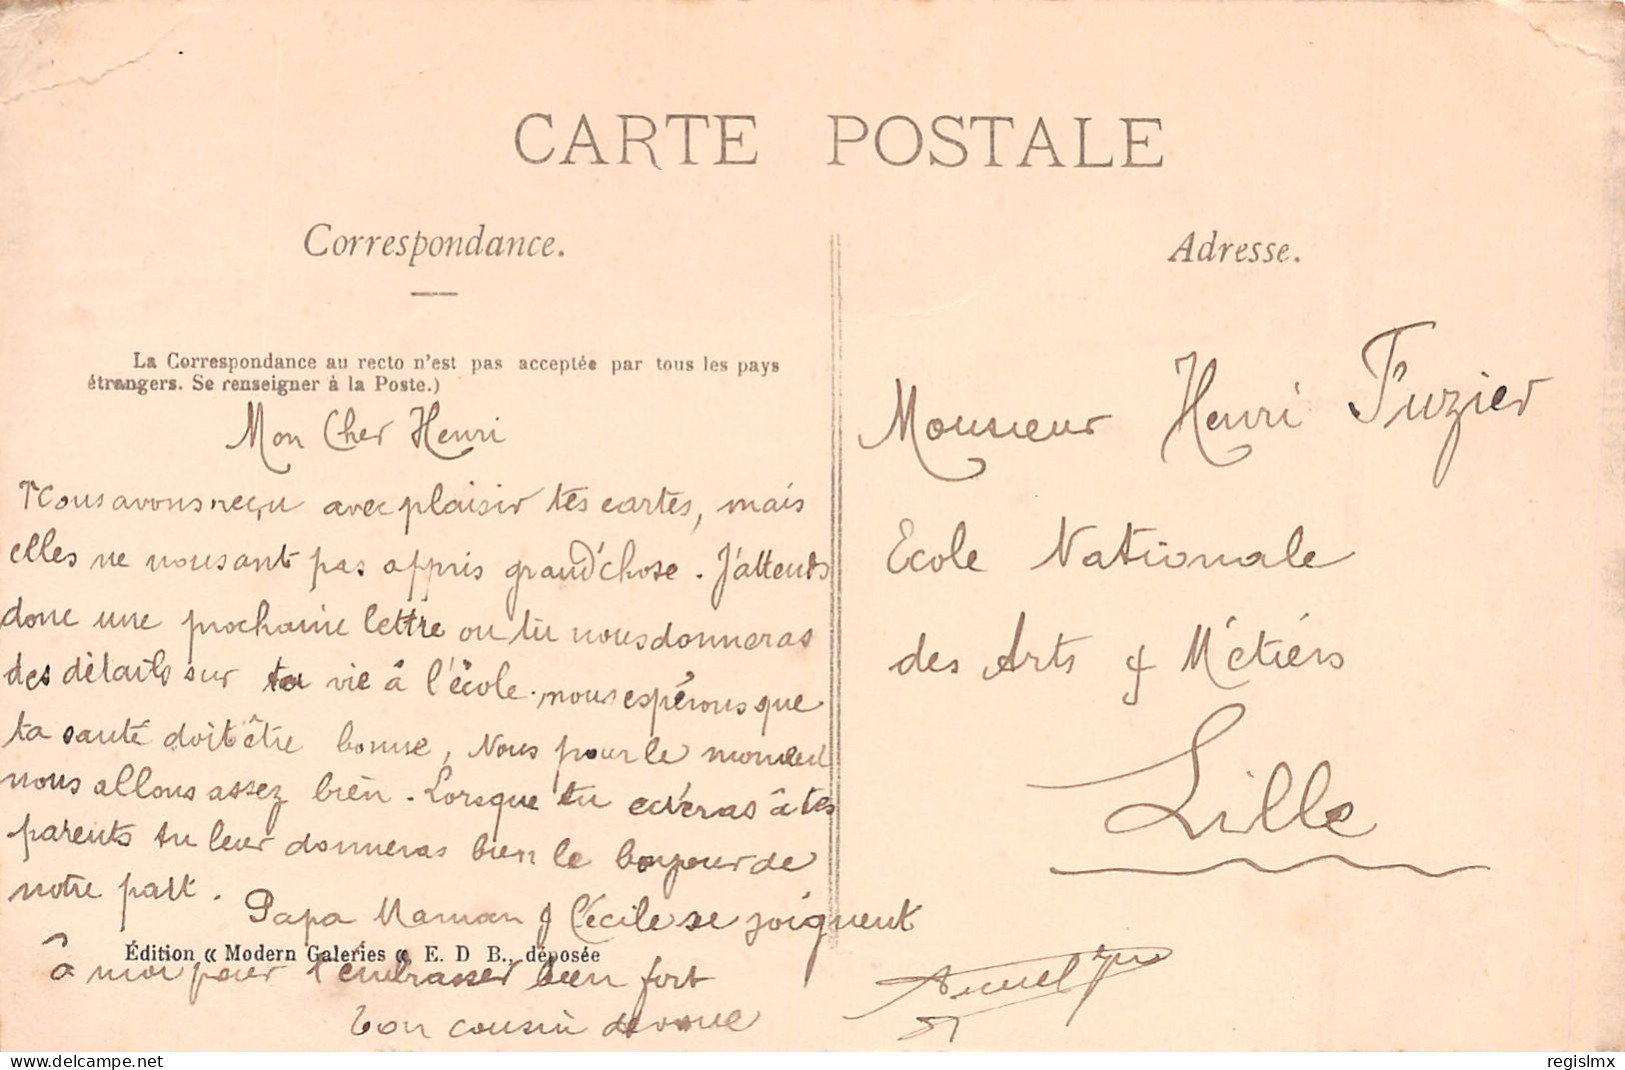 CARTE POSTALE
Correspondance.
La Correspondance au recto n'est pas acceptée par tous les pays
étrangers. Se renseigner à la Poste.)
Mon Cher Henri
Nous avons reçu avec plaisir tes cartes, mais
elles ne nous ont pas appris grand'chose. J'attends
donc une prochaine lettre ou tu nous donneras
des détails sur ta vie à l'école. nous espérons que
ta santé doit être bonne, Nous pour le moment
nous allons assez bien. Lorsque tu ecriras à tes
parents tu leur donneras bien le bonjour de
notre part.
Papa Maman & Cécile se joignent
à moi pour t'embrasser bien fort
Ton cousin devoué
Édition « Modern Galeries « E. D B., déposée
Adresse.
Monsieur Henri Fuzier
Ecole Nationale
des Arts & Métiers
Lille
delcampe.net
regislmx